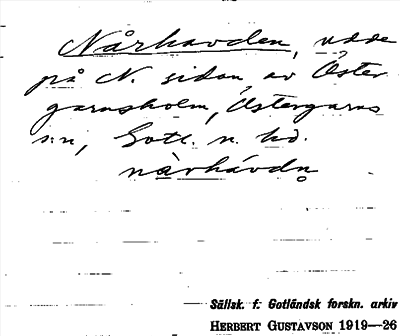 Nårhavden, udde
på N. sidan av Öster
garnsholm, Östergarns
s:n, Gotl. n. hd.
nàrhávdn̥
Sällsk. f. Gotländsk forskn. arkiv
HERBERT GUSTAVSON 1919—26